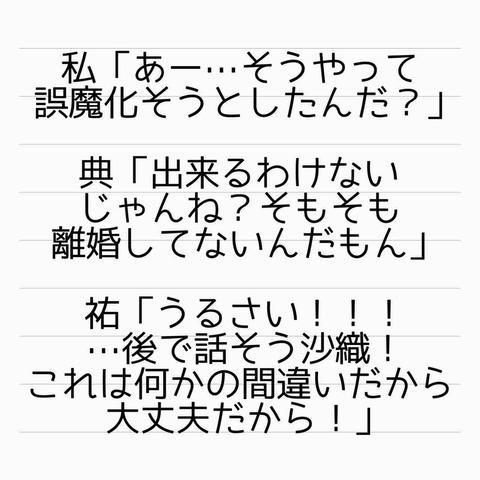 私「あー…そうやって
誤魔化そうとしたんだ？」
典「出来るわけない
じゃんね？そもそも
離婚してないんだもん」
祐「うるさい！！！
…後で話そう沙織！
これは何かの間違いだから
大丈夫だから！」